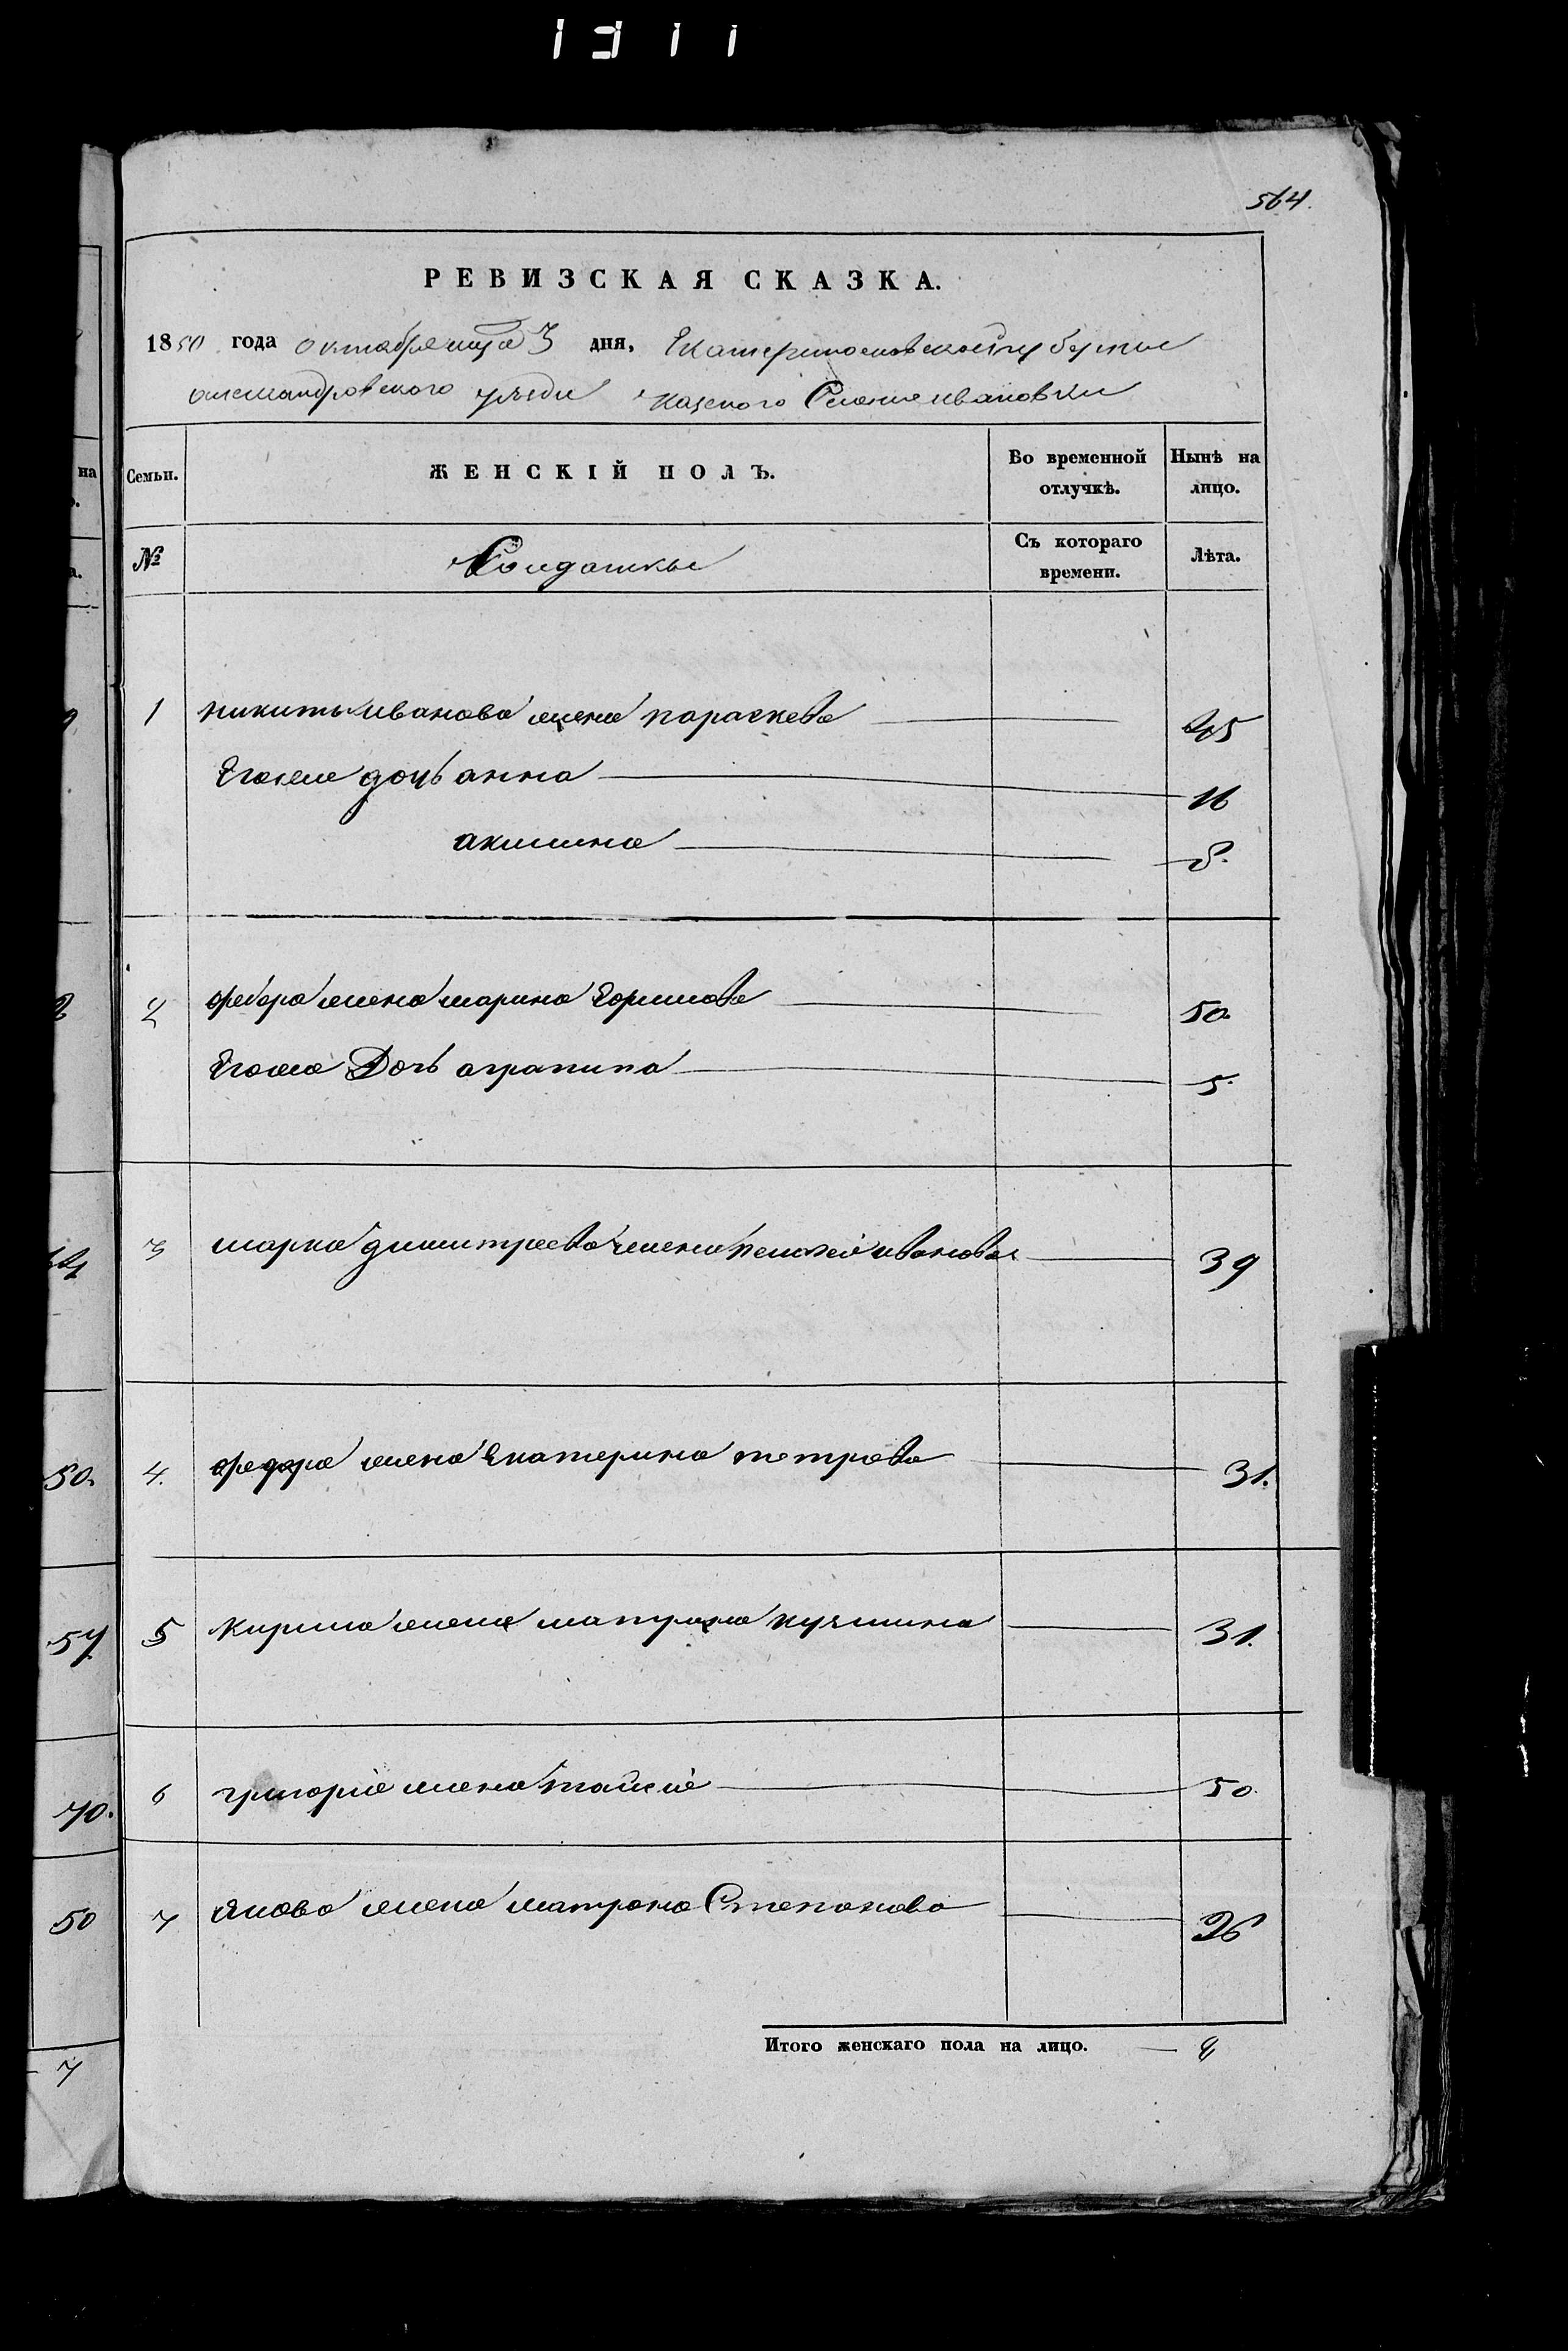 1311
564.
РЕВИЗСКАЯ СКАЗКА.
1850 года октября мца 3 дня, Екатеринославской губернии
александровского уезди казеного Селение ивановки
Семьи. ЖЕНСКІЙ ПОЛЪ. Во временной отлучкѣ. Нынѣ на лицо.
№ Солдаткы Съ котораго времени. Лѣта.
1 никиты иванова жена параскева 45
Егоже дочь анна 16
акилина 8.
2 федора жена марина 50.
Егоже Дочь аграпина 5.
3 марка димитреева жена иванова 39
4. федора жена Екатерина петрова 31.
5 кирила жена матрона 31.
6 григорiя жена таисiя 50.
7 якова жена матрона Степанова 26
Итого женскаго пола на лицо.
50.
57.
70.
50
7